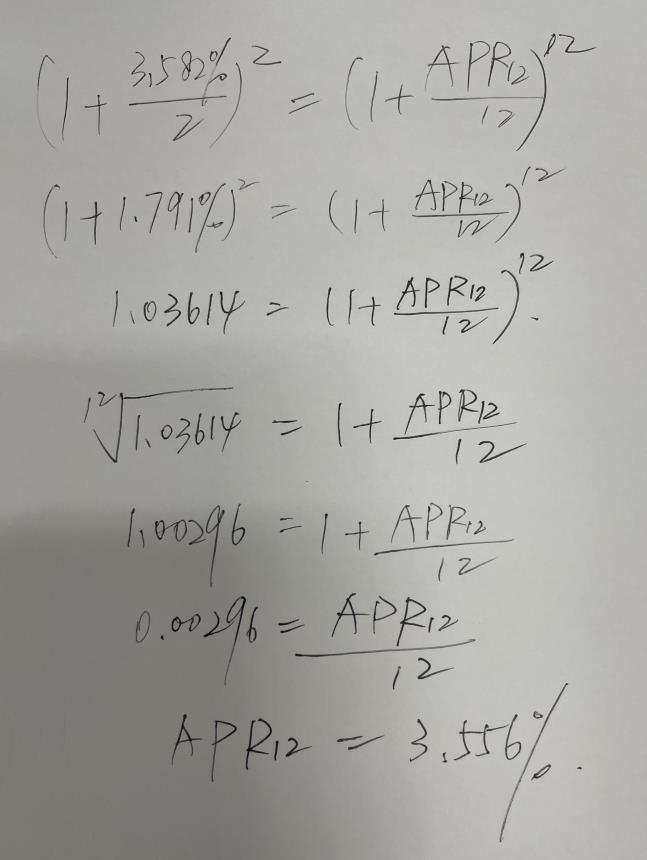 (1 + 3.582%/2)² = (1 + APR₁₂/12)¹²
(1 + 1.791%)² = (1 + APR₁₂/12)¹²
1.03614 = (1 + APR₁₂/12)¹².
¹²√1.03614 = 1 + APR₁₂/12
1.00296 = 1 + APR₁₂/12
0.00296 = APR₁₂/12
APR₁₂ = 3.556%.